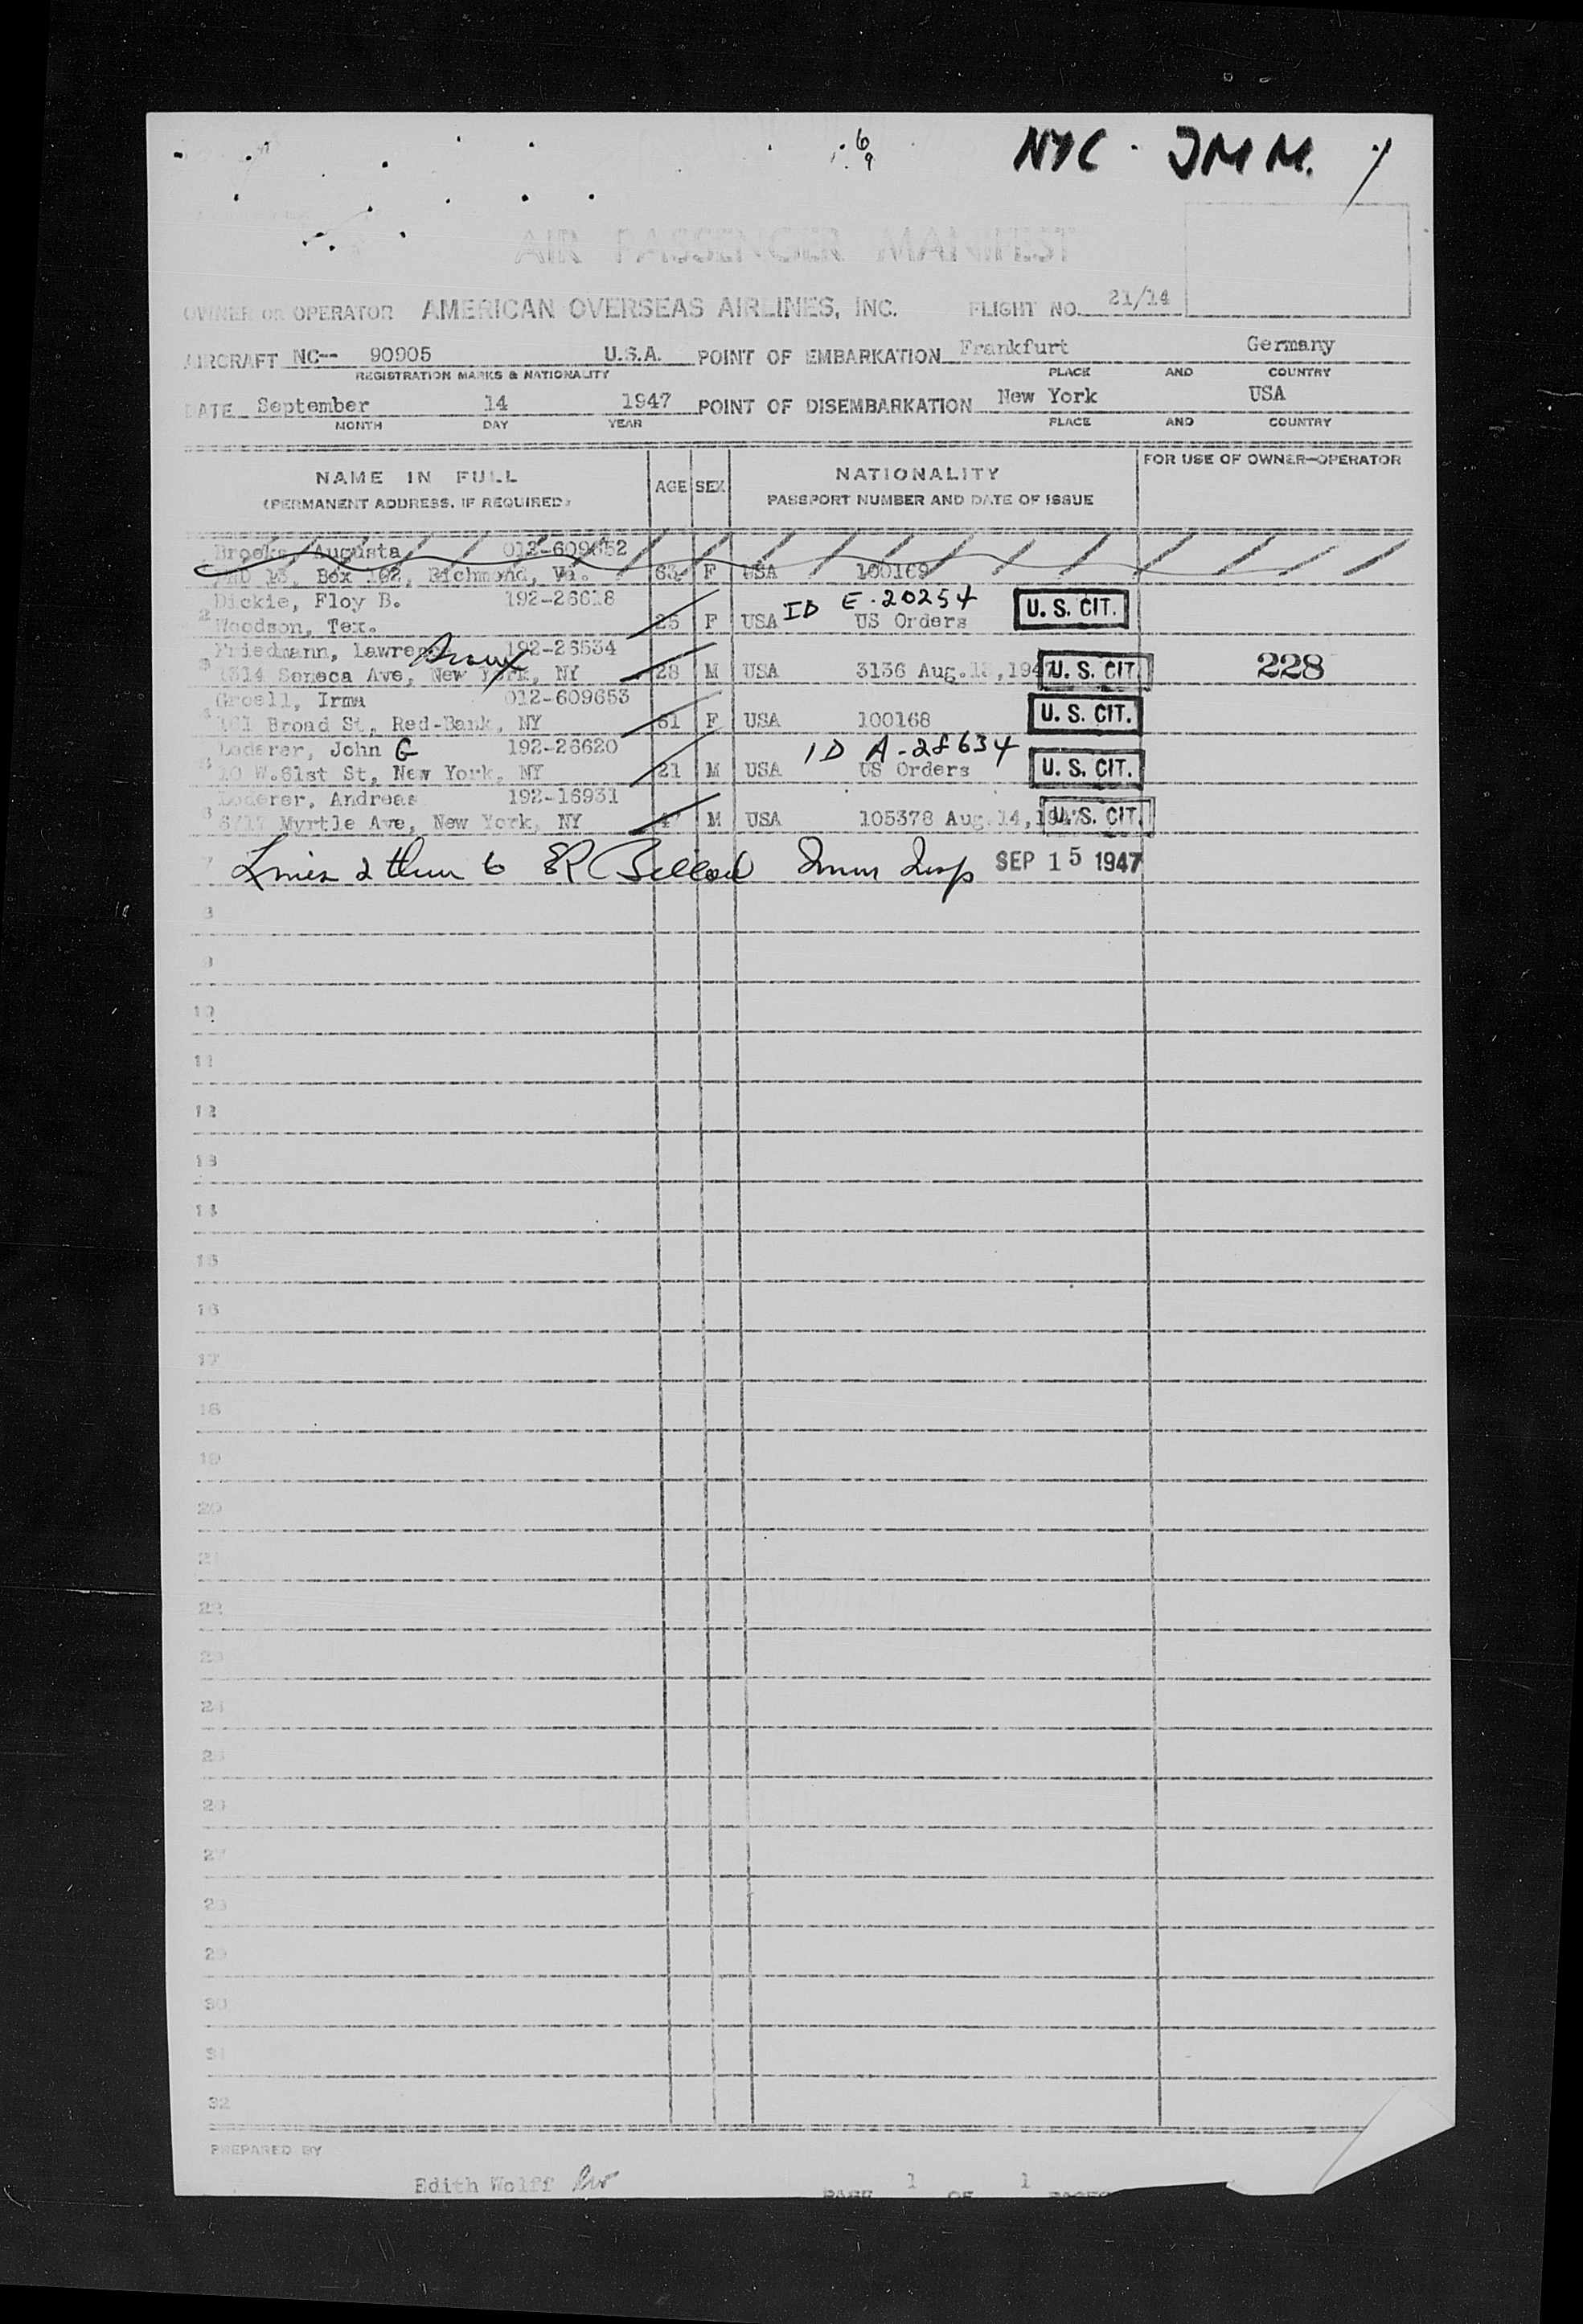 6
9
NYC - JMM. 1
AIR PASSENGER MANIFEST
OWNER OR OPERATOR AMERICAN OVERSEAS AIRLINES, INC. FLIGHT NO. 21/14
AIRCRAFT NC-- 90905 U.S.A. POINT OF EMBARKATION Frankfurt Germany
REGISTRATION MARKS & NATIONALITY PLACE AND COUNTRY
DATE September 14 1947 POINT OF DISEMBARKATION New York USA
MONTH DAY YEAR PLACE AND COUNTRY
NAME IN FULL AGE SEX NATIONALITY FOR USE OF OWNER-OPERATOR
(PERMANENT ADDRESS, IF REQUIRED) PASSPORT NUMBER AND DATE OF ISSUE
Brooks, Augusta 012-609652
Box 162, Richmond, Va. 63 F USA 100169
Dickie, Floy B. 192-26618 ID E-20254 U. S. CIT.
2 Woodson, Tex. 25 F USA US Orders
Friedmann, Lawrence 192-26534
Bronx
1314 Seneca Ave, New York, NY 28 M USA 3136 Aug. 1947 U. S. CIT. 228
Groell, Irma 012-609653
Broad St, Red-Bank, NY 61 F USA 100168 U. S. CIT.
Loderer, John G 192-26620 ID A-28634
10 W.61st St, New York, NY 21 M USA US Orders U. S. CIT.
Loderer, Andreas 192-16931
Myrtle Ave, New York, NY M USA 105378 Aug. 14, 1947 U. S. CIT.
7 Lines 2 thru 6 Immn Insp SEP 15 1947
8
9
10
11
12
13
14
15
16
17
18
19
20
21
22
23
24
25
26
27
28
29
30
31
32
PREPARED BY
Edith Wolff PAGE 1 OF 1 PAGES